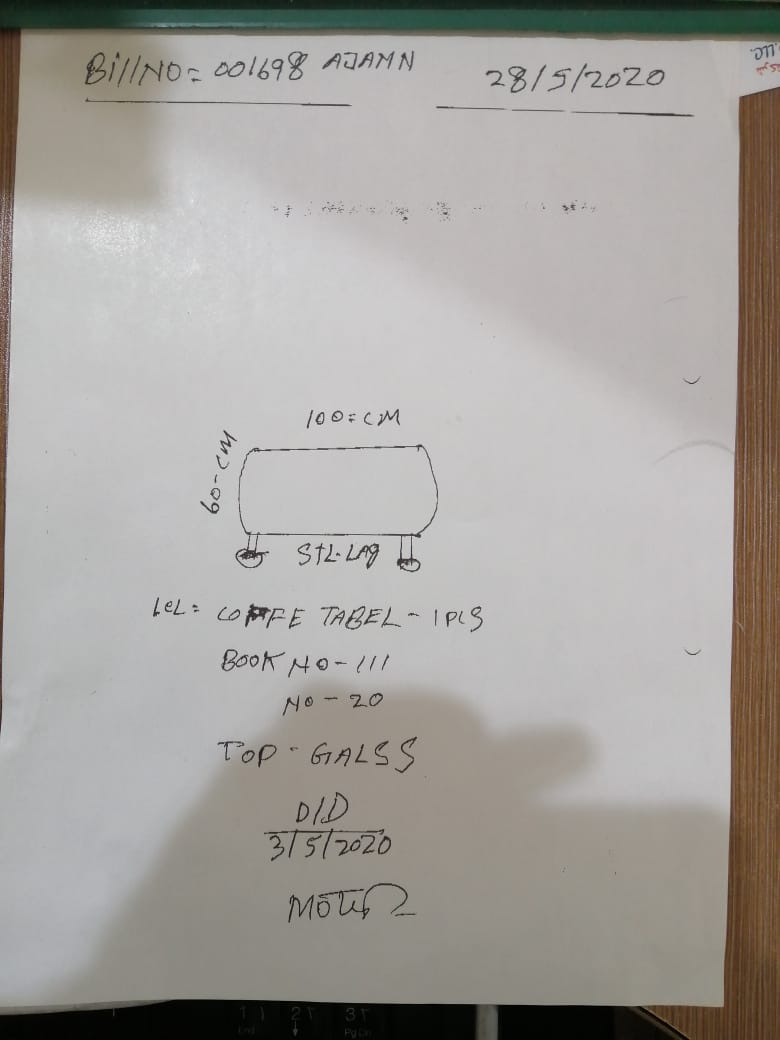 Bill NO = 001698 AJAMN 28/5/2020
100 = CM
60 - CM
StL - LAg
LeL = COFFE TABEL - 1 PCS
BOOK NO - 111
NO - 20
TOP - GALSS
D/D
3/5/2020